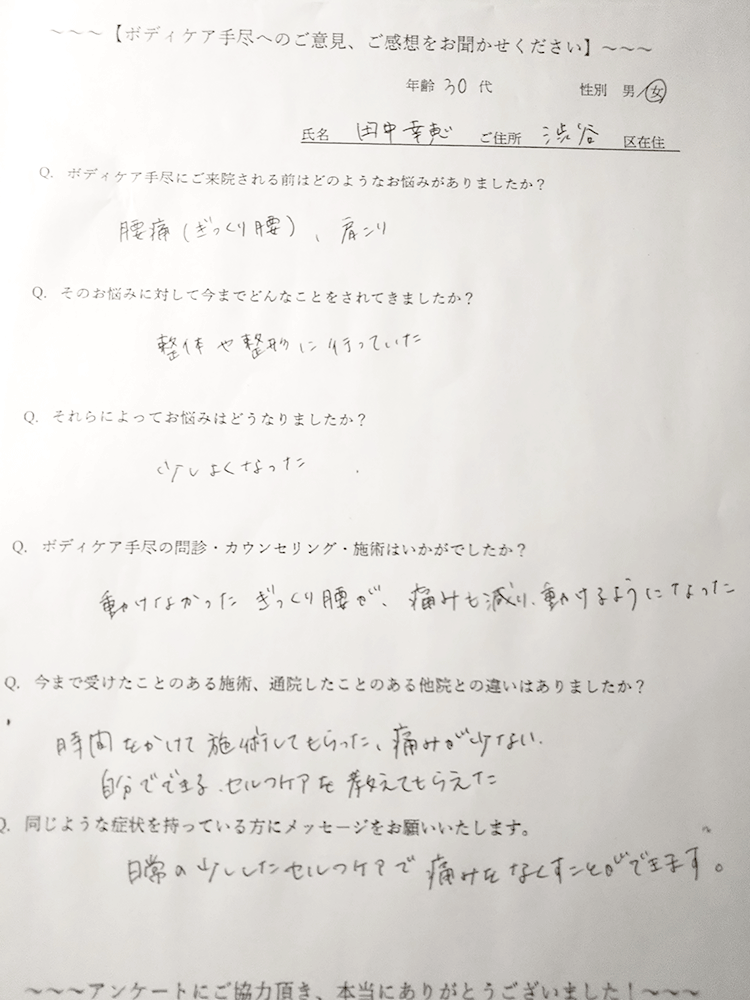 ～～～【ボディケア手尽へのご意見、ご感想をお聞かせください】～～～
年齢 30 代 性別 男/女
氏名 田中幸恵 ご住所 渋谷 区在住
Q. ボディケア手尽にご来院される前はどのようなお悩みがありましたか？
腰痛(ぎっくり腰)、肩こり
Q. そのお悩みに対して今までどんなことをされてきましたか？
整体や整形に行っていた
Q. それらによってお悩みはどうなりましたか？
少しよくなった
Q. ボディケア手尽の問診・カウンセリング・施術はいかがでしたか？
動けなかったぎっくり腰が、痛みも減り、動けるようになった
Q. 今まで受けたことのある施術、通院したことのある他院との違いはありましたか？
時間をかけて施術してもらった、痛みが少ない.
自分でできる、セルフケアを教えてもらえた
Q. 同じような症状を持っている方にメッセージをお願いいたします。
日常の少ししたセルフケアで痛みをなくすことができます。
～～～アンケートにご協力頂き、本当にありがとうございました！～～～